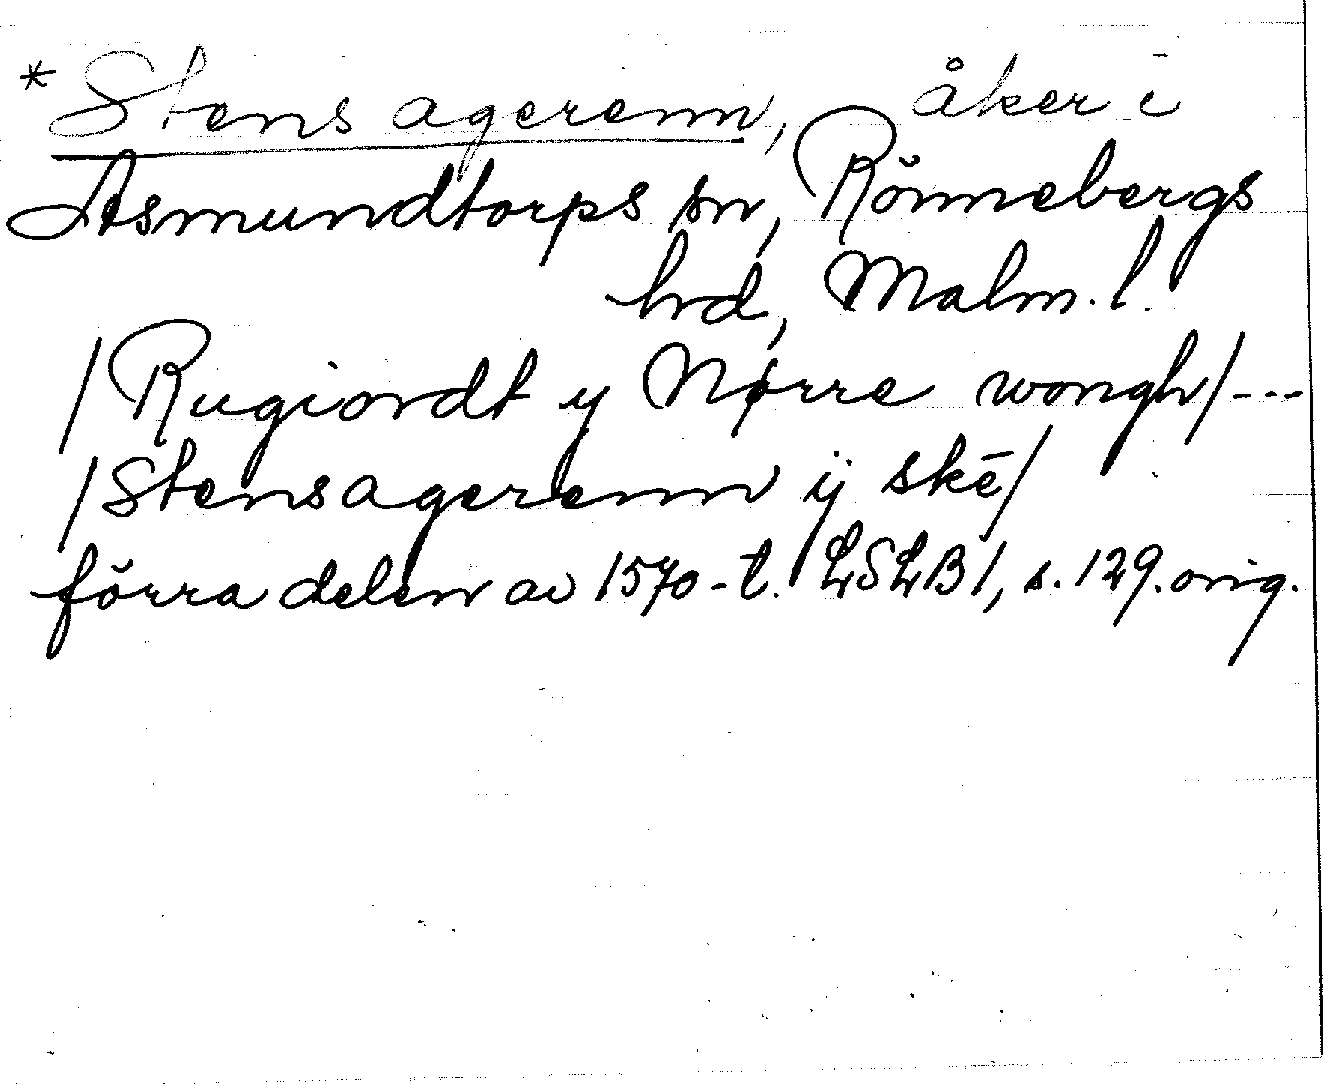 *Stens agerenn, åker i
Asmundtorps sn, Rönnebergs
hrd, Malm. l.
/Rugiordt y Nørre wongh/---
/Stensagerenn ÿ skē/
förra delen av 1570-t. LSLB 1, s. 129. orig.